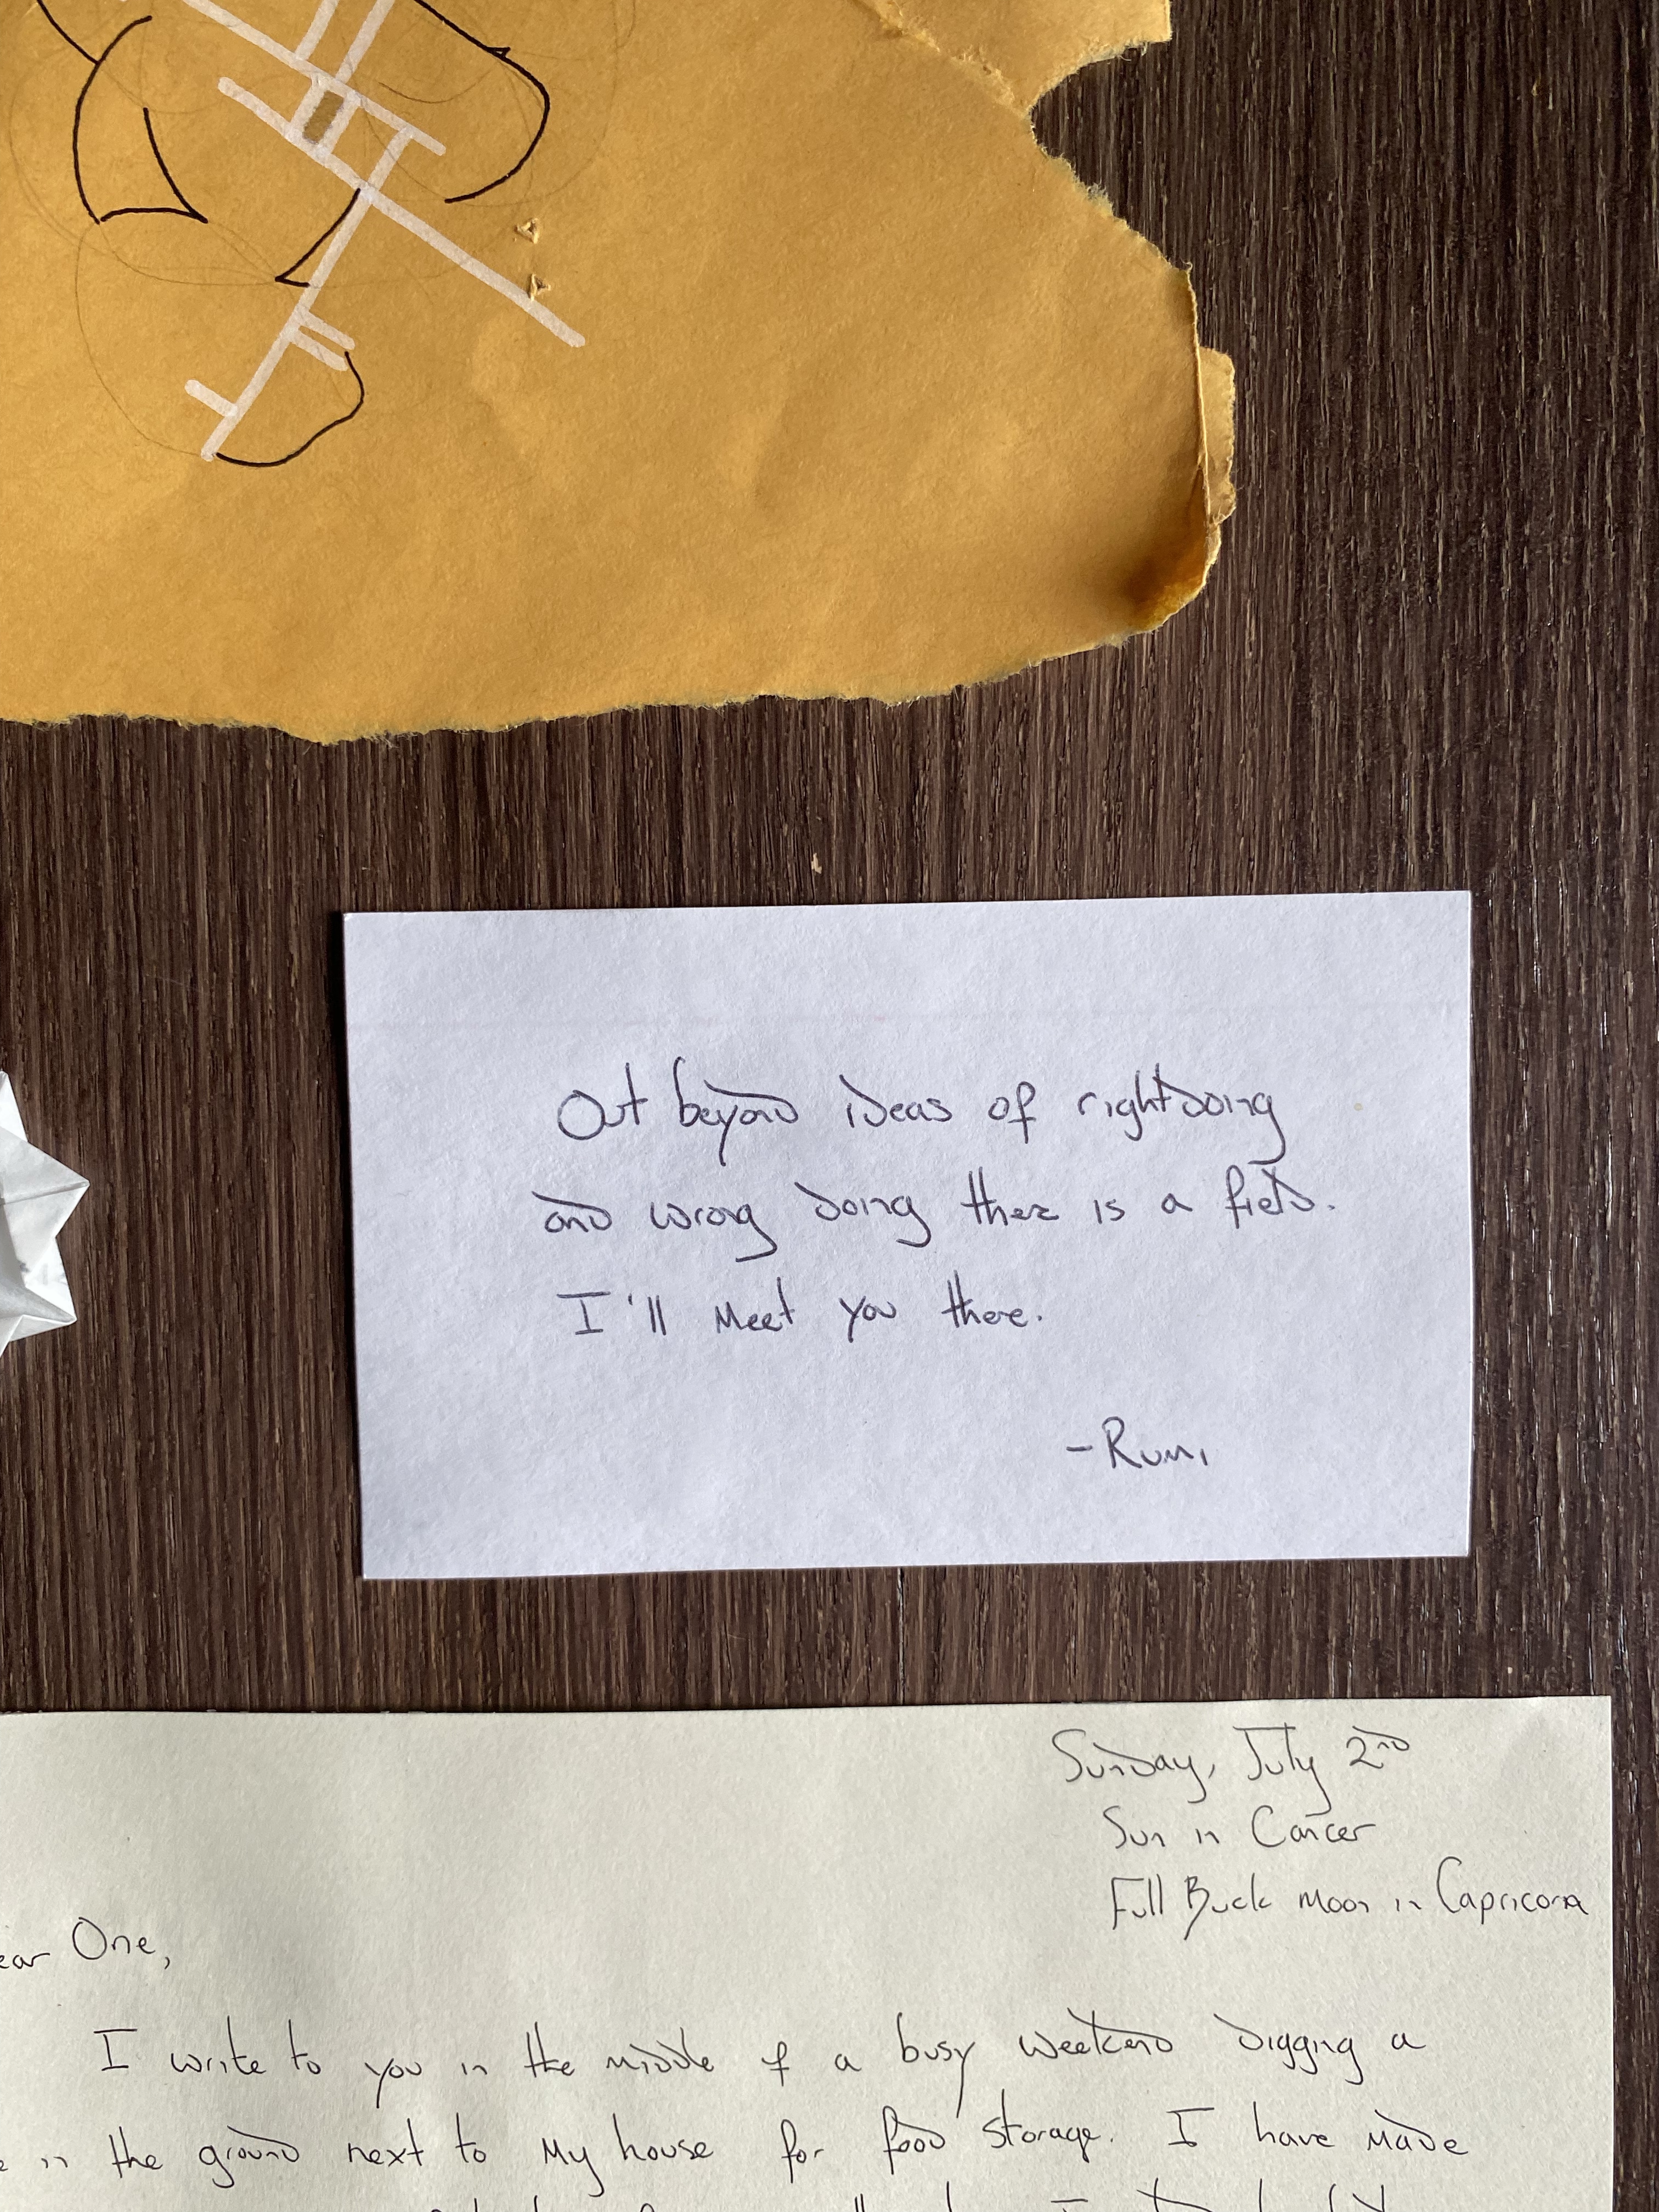 Out beyond ideas of rightdoing
and wrong doing there is a field.
I'll meet you there.
-Rumi
Sunday, July 2nd
Sun in Cancer
Full Buck Moon in Capricorn
ear One,
I write to you in the middle of a busy weekend digging a
in the ground next to my house for food storage. I have made